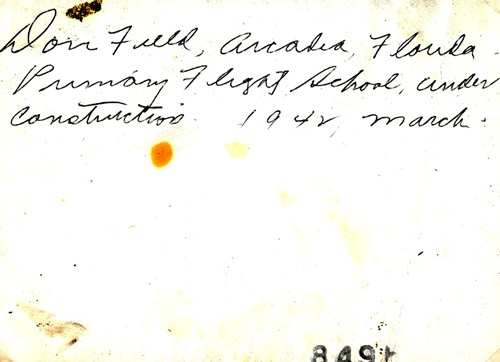 Dorr Field, Arcadia, Florida -
Primary Flight School, under
construction. 1942, March.
849